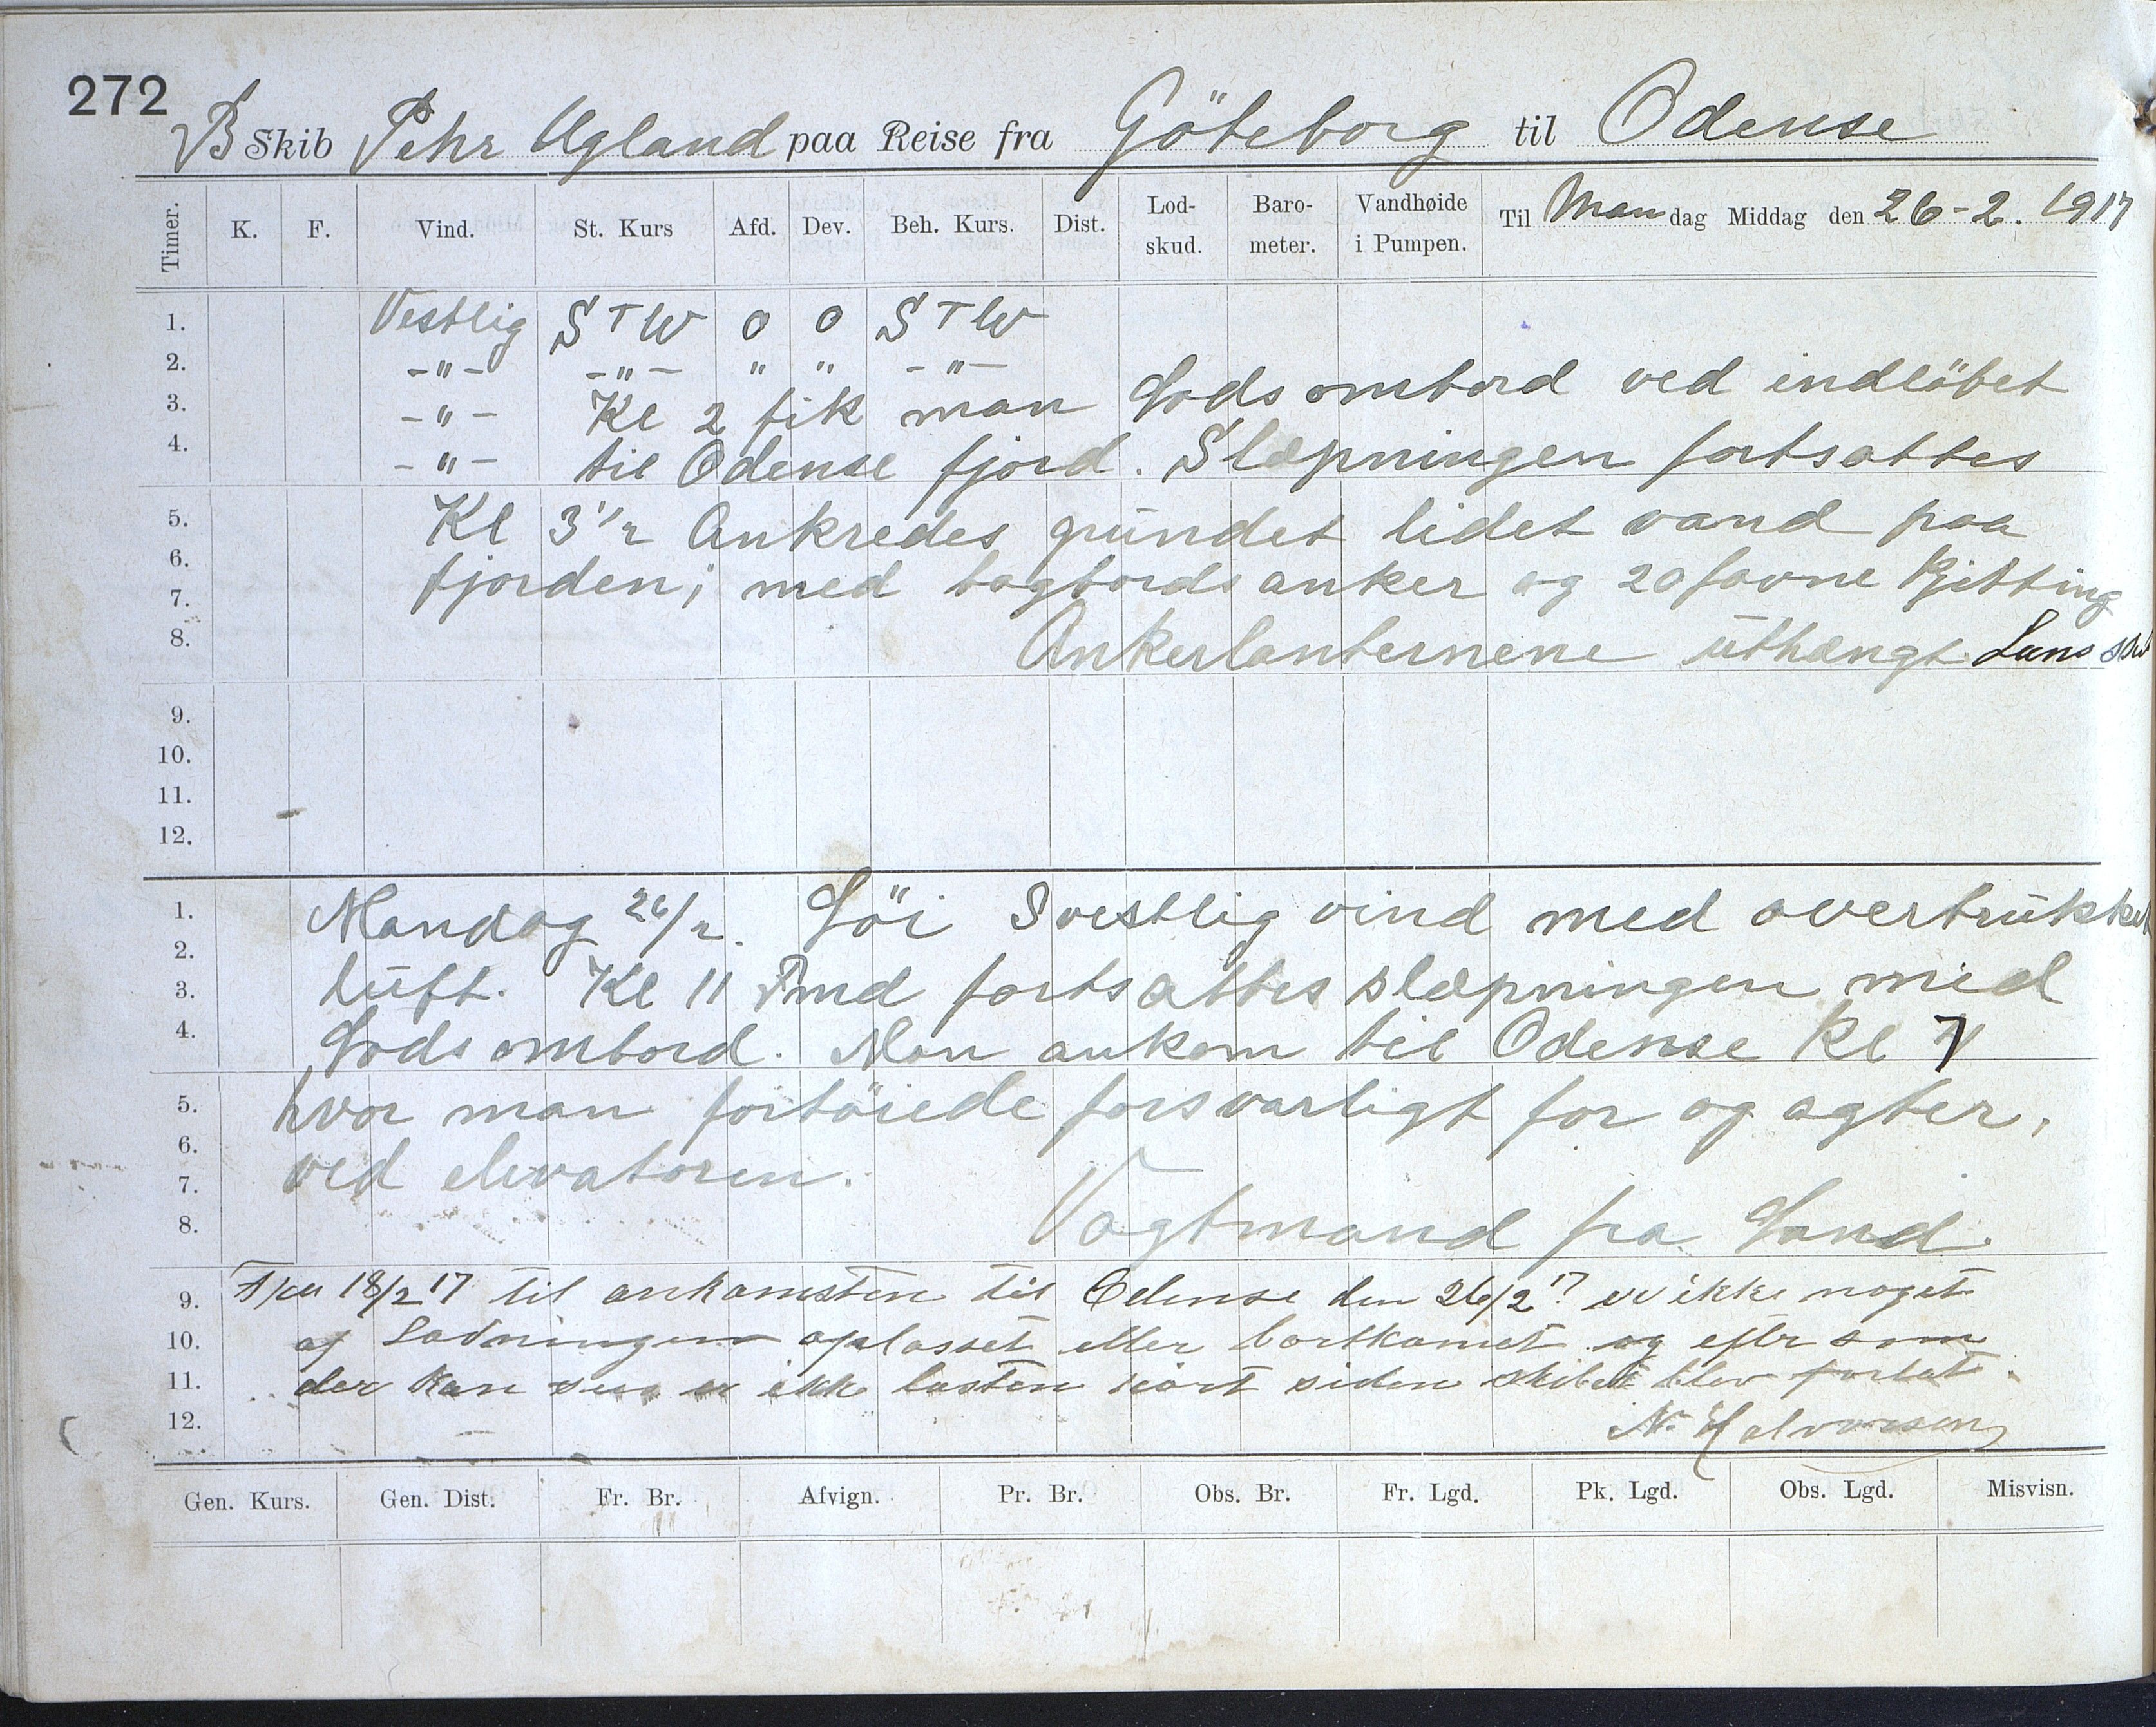 272
B Skib Pehr Ugland paa Reise fra Göteborg til Odense
Timer. K. F. Vind. St. Kurs Afd. Dev. Beh. Kurs. Dist. Lod-skud. Baro-meter. Vandhøide i Pumpen. Til Mandag Middag den 26-2. 1917
1. Vestlig STW 0 0 STW
2. -"- -"- " " -"-
3. -"- Kl 2 fik man Lods ombord ved indløbet
4. -"- til Odense fjord. Slæpningen fortsattes
5. Kl 3 1/2 Ankredes grundet lidet vand paa
6. fjorden; med bagbords anker og 20 favne Kjetting
7.
8. Ankerlanternene uthængt Lens
9.
10.
11.
12.
1. Mandag 26/2. Löi Svestlig vind med overtrukket
2. luft. Kl 11 Fmd fortsattes slæpningen med
3.
4. Lods ombord. Man ankom til Odense Kl 7
5. hvor man fortöiede forsvarligt for og agter,
6. ved elevatoren.
7.
8. Vagtmand fra Land.
9. Fra 18/2 17 til ankomsten til Odense den 26/2 17 er ikke noget
10. af Ladningen oplosset eller bortkomet og efter som
11. der kan sees er ikke lasten rört siden skibet blev forlat.
12. N. Halvorsen
Gen. Kurs. Gen. Dist. Fr. Br. Afvign. Pr. Br. Obs. Br. Fr. Lgd. Pk. Lgd. Obs. Lgd. Misvisn.